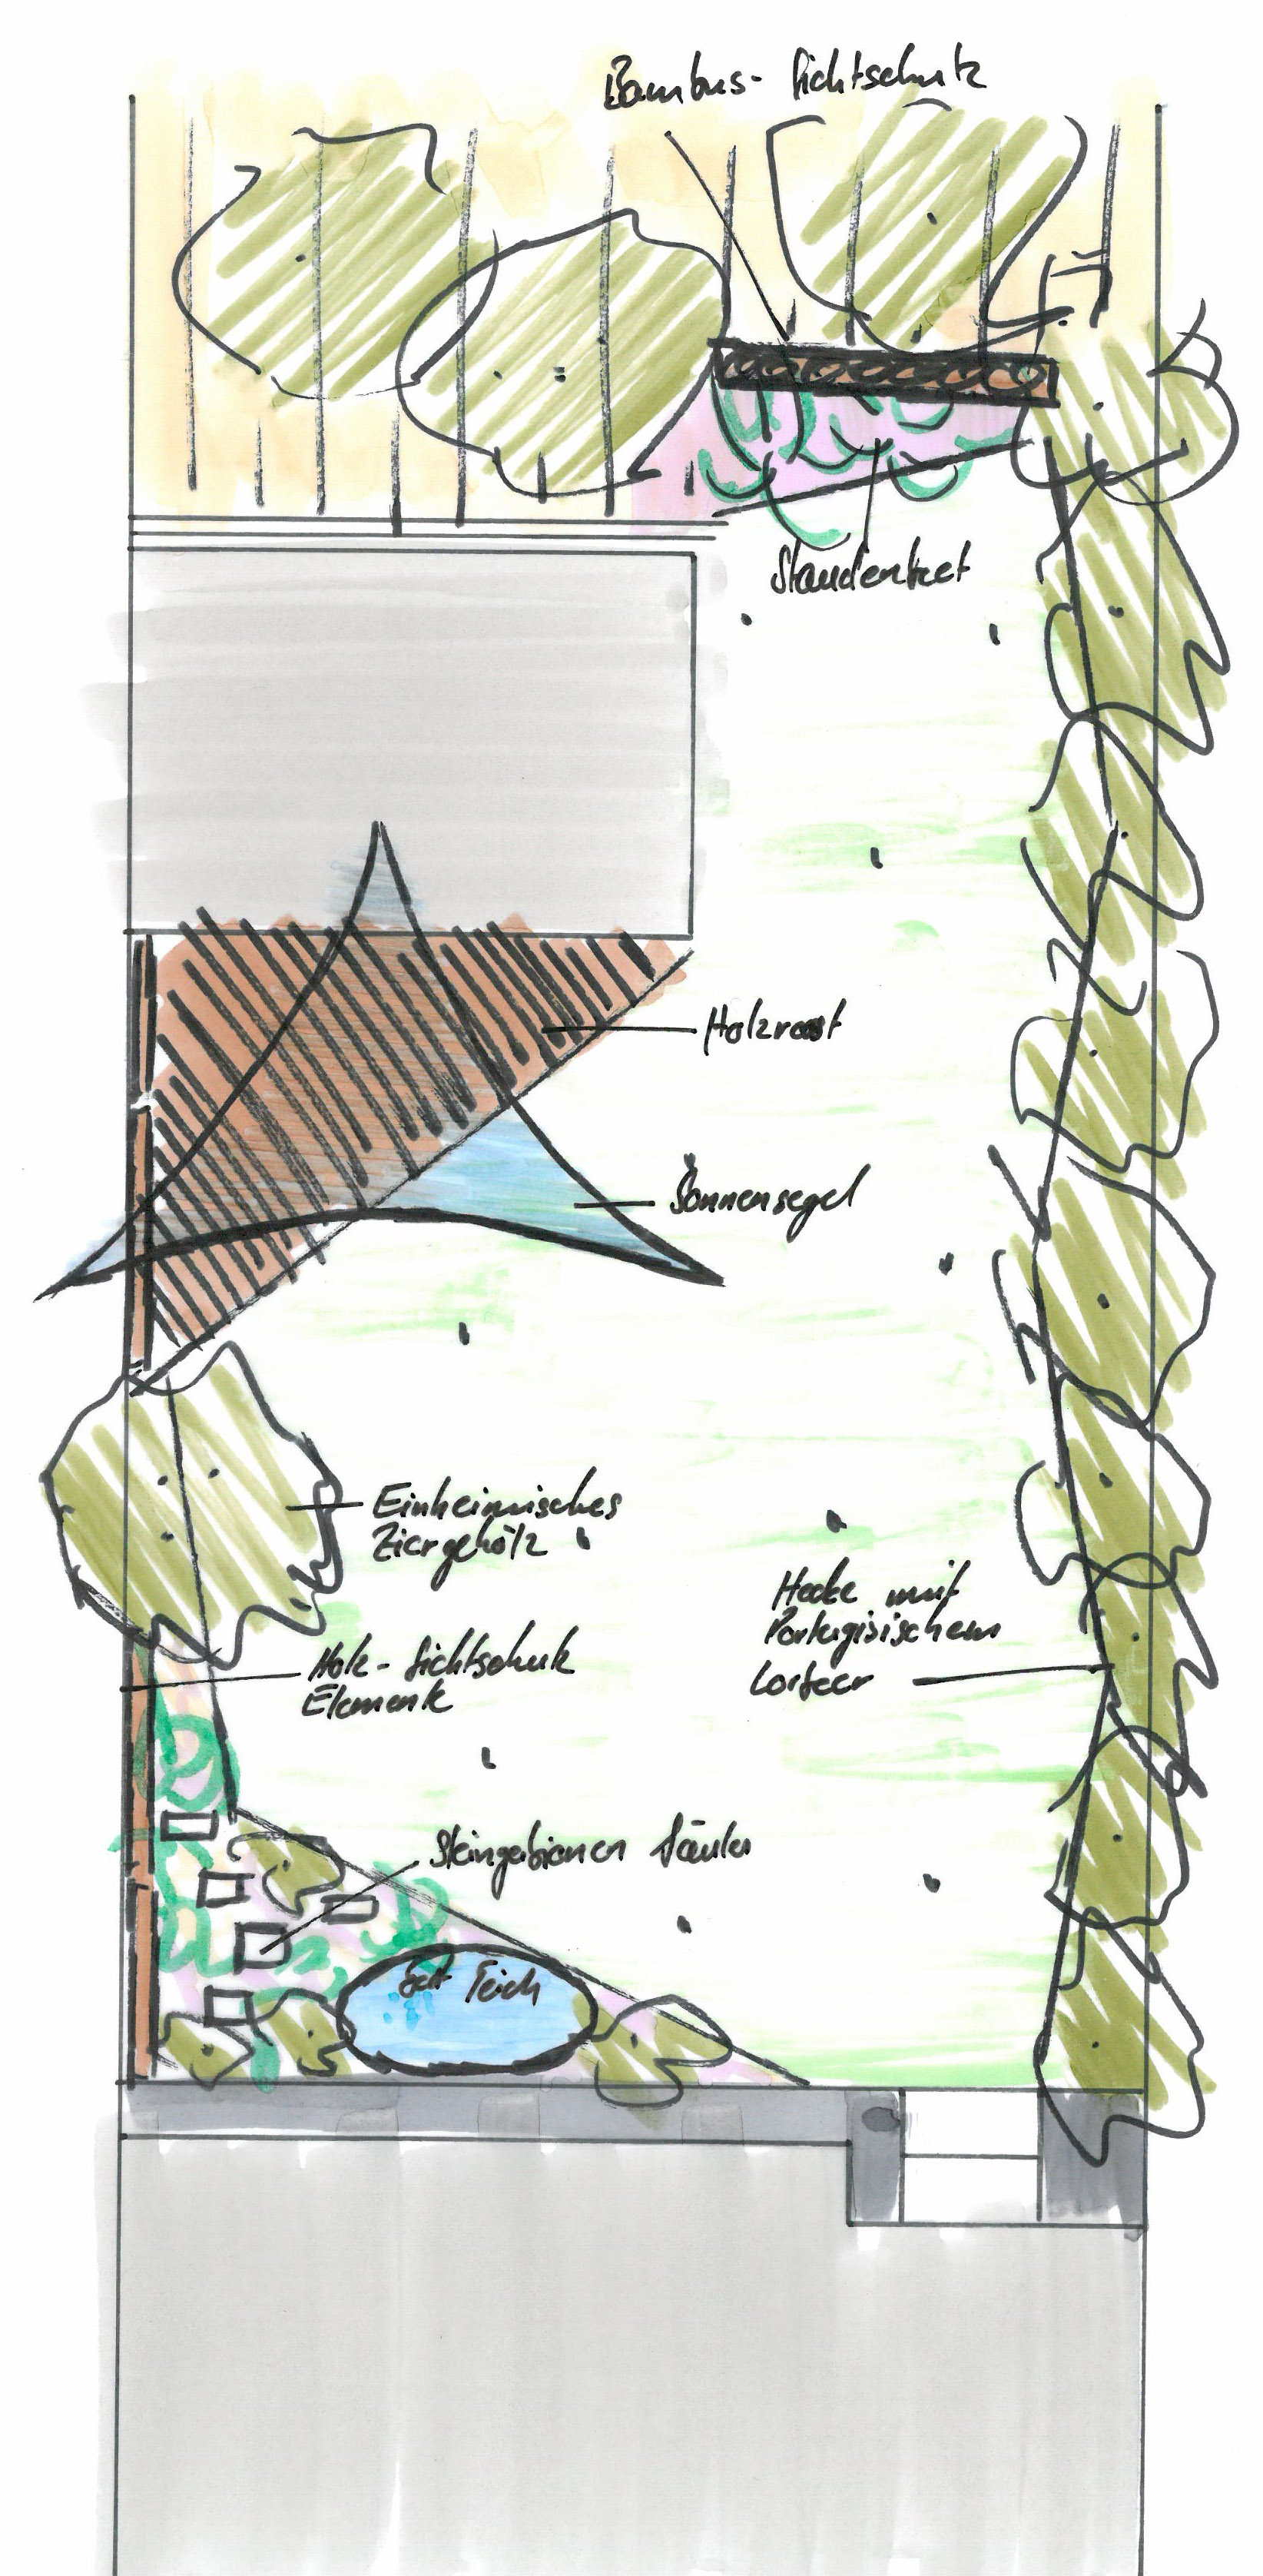 Bambus- Sichtschutz
Staudenbeet
Holzrost
Sonnensegel
Einheimisches
Ziergehölz
Hecke mit
Portugisischem
Lorbeer
Holz- Sichtschutz
Elemente
Steingabionen Säulen
Teich